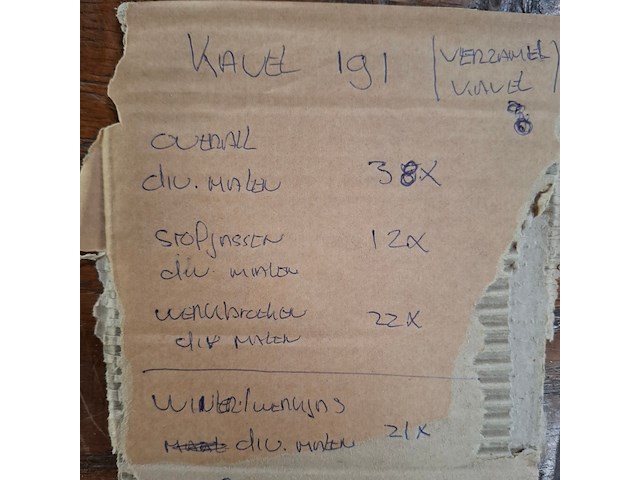 KAVEL 191 (VERZAMEL
KAVEL)
OVERALL
div. MATEN 38X
STOFJASSEN 12X
div. MATEN
WERKbroeken 22X
div MATEN
WINTER/WERKJAS
div. MATEN 21X